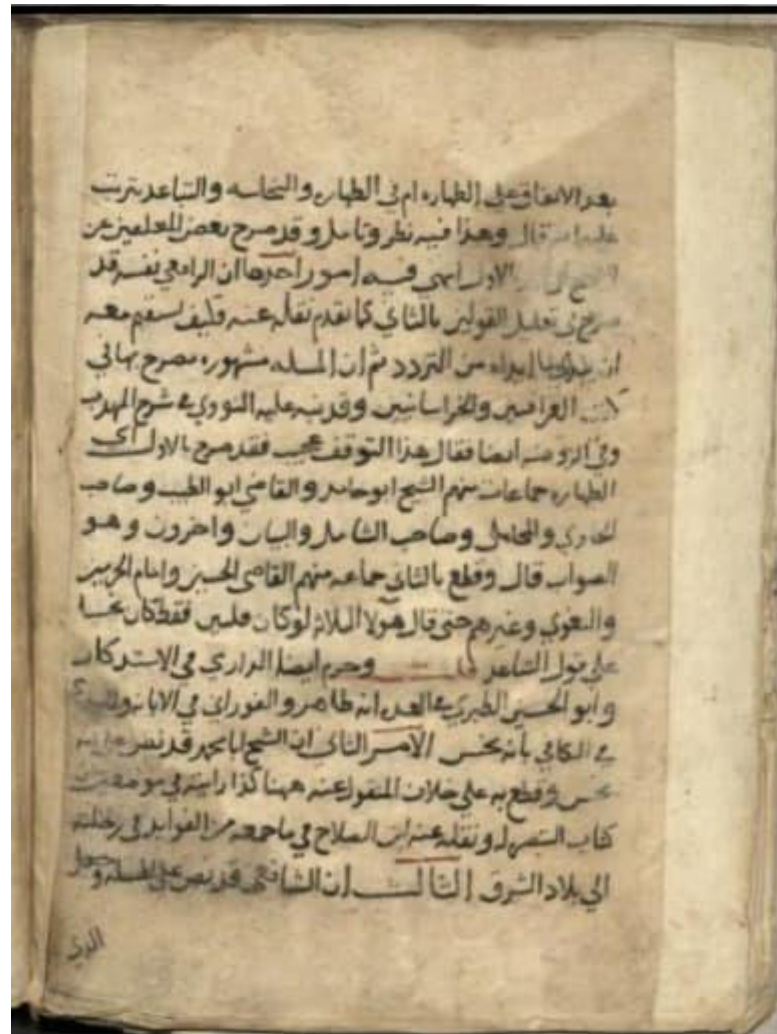 بعد الاتفاق على الطهاره ام في الطهاره والنجاسه والتباعد يترتب
عليه قال وهذا فيه نظر وتامل وقد صرح بعض المعلقين عن
الشيخ الاول انتهى فيه امور احدها ان الرافعي نفسه قد
صرح في تعليل القولين بالثاني كما تقدم نقله عنه فكيف يستقيم معه
ان ابداه من التردد ثم ان المسله مشهوره مصرح بها في
كتب العراقيين والخراسانيين وقد نبه عليه النووي في شرح المهذب
وفي الروضه ايضا فقال هذا التوقف عجيب فقد صرح بالاول اي
الطهاره جماعات منهم الشيخ ابو حامد والقاضي ابو الطيب وصاحب
الحاوي والمحاملي وصاحب الشامل والبيان واخرون وهو
الصواب قال وقطع بالثاني جماعه منهم القاضي الحسين وامام الحرمين
والبغوي وغيرهم حتى قال هولا الثلاثه لو كان قلتين فقط كان نجسا
على قول التباعد وجزم ايضا الداري في الاستدكار
وابو الحسين الطبري في العده انه طاهر و الفوراني في الابانه
في الكافي بانه نجس الامر الثاني ان الشيخ ابا محمد قد نص على انه
نجس وقطع به على خلاف المنقول عنه ههنا كذا رايته في
كتاب التبصره له ونقله عنه ابن الصلاح في ما جمعه من الفوايد في رحلته
الي بلاد الشرق الثالث ان الشافعي قد نص على المسله